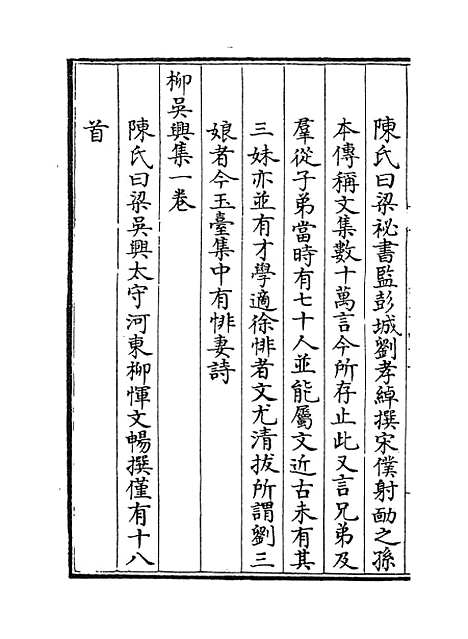 陳氏曰梁祕書監彭城劉孝綽撰宋僕射勔之孫
本傳稱文集數十萬言今所存止此又言兄弟及
羣從子弟當時有七十人並能屬文近古未有其
三妹亦並有才學適徐悱者文尤清拔所謂劉三
娘者今玉臺集中有悱妻詩
柳吳興集一卷
陳氏曰梁吳興太守河東柳惲文暢撰僅有十八
首